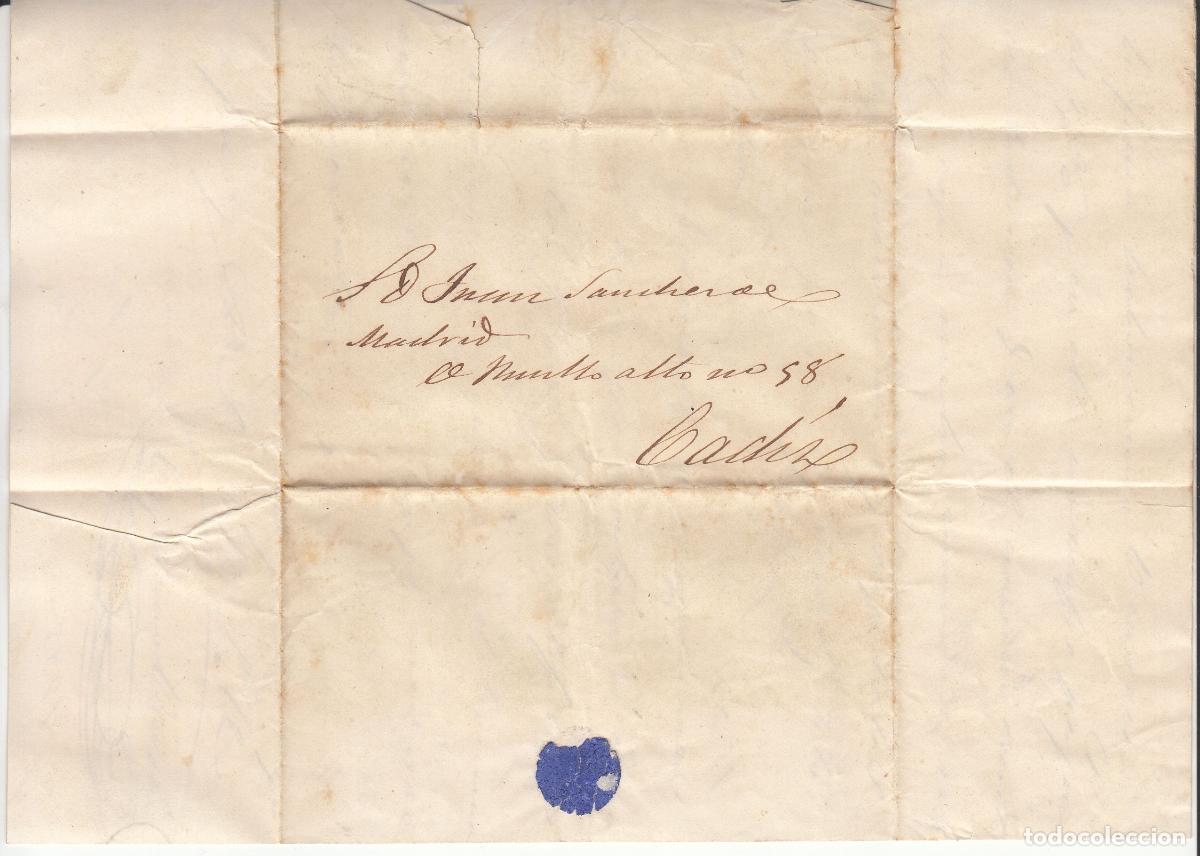 S D Juan Sanchez de
Madrid
C Murillo alto no 58
Cadiz
todocoleccion